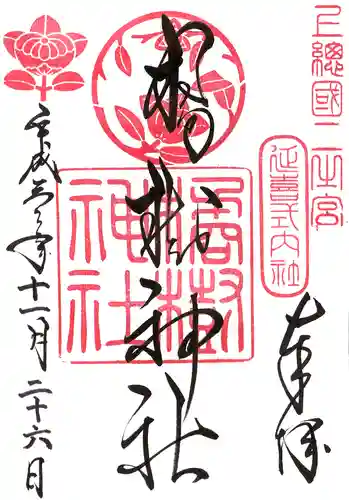 上總國二之宮
延喜式内社
奉拝
橘樹神社
橘樹神社
平成三年十一月二十六日